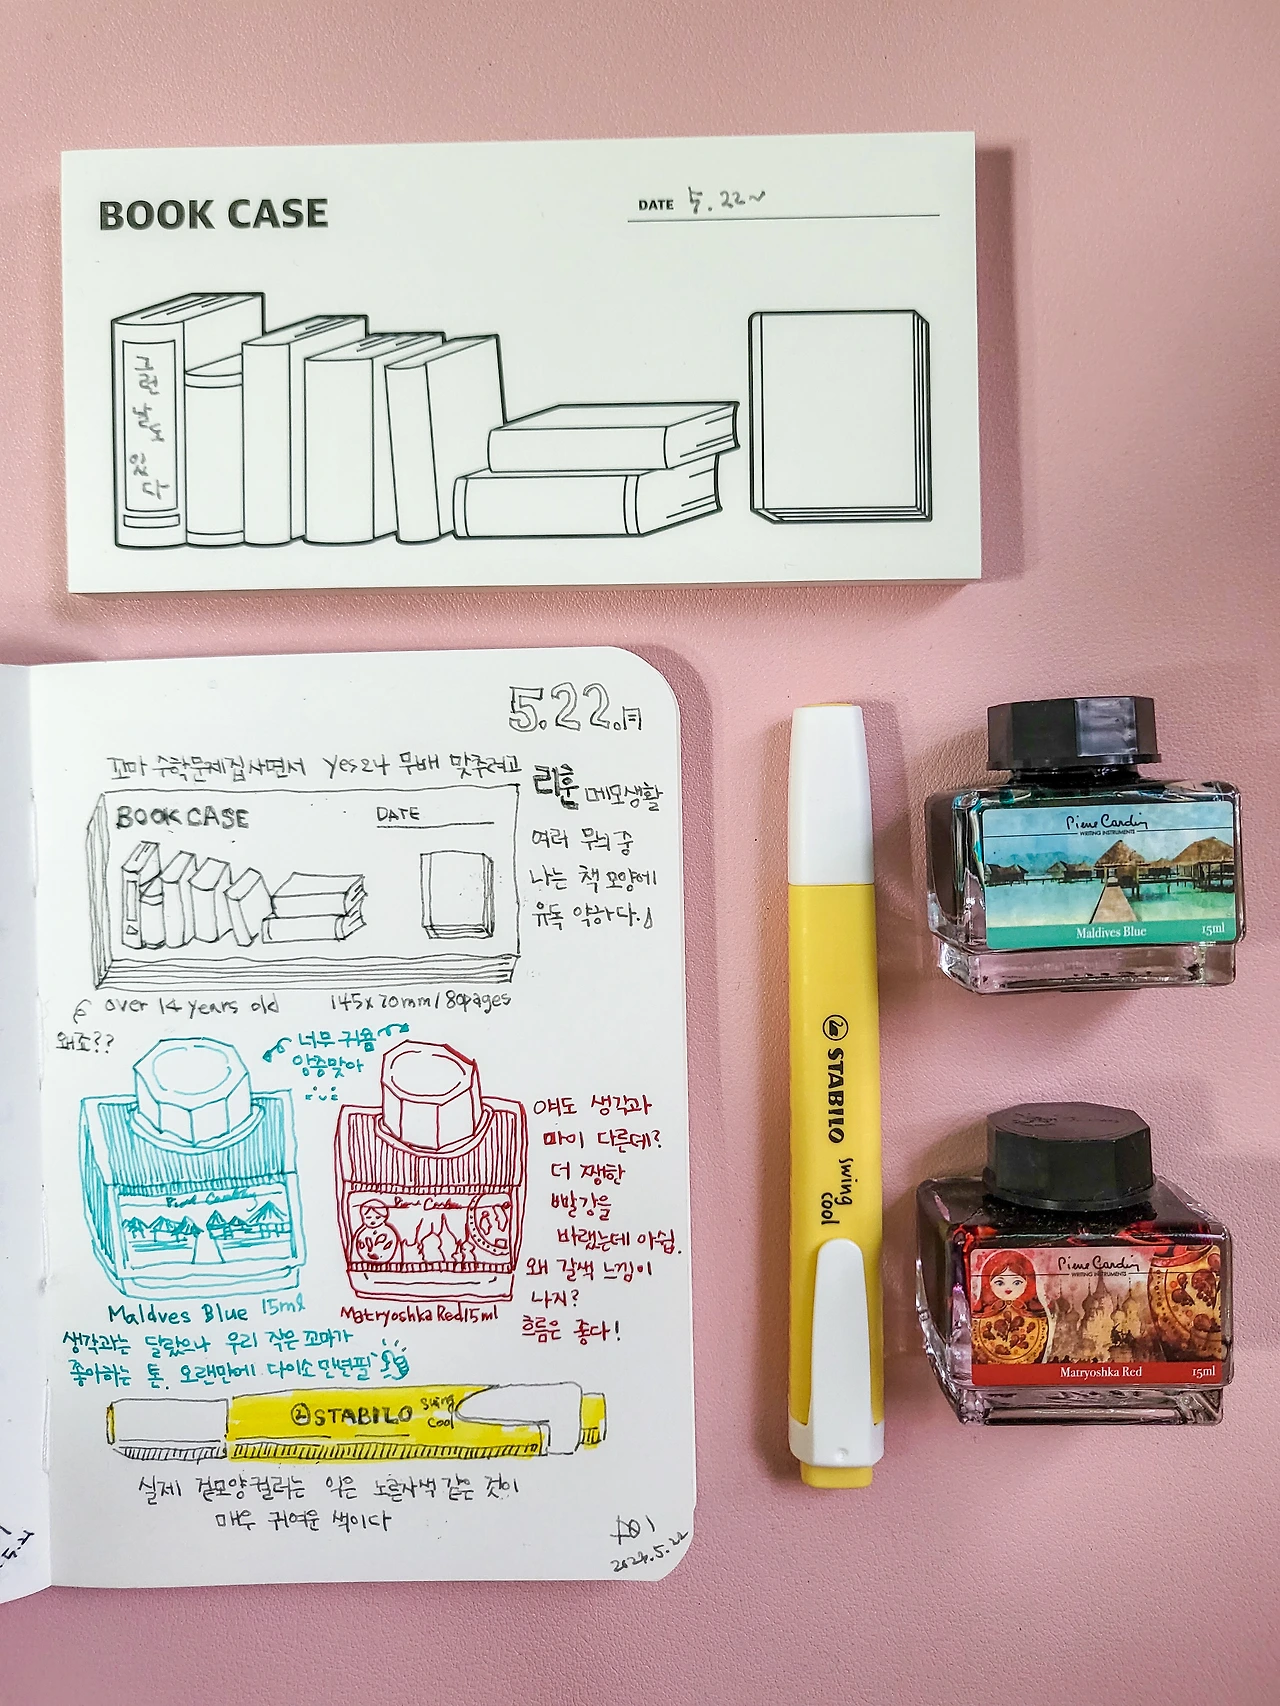 BOOK CASE
DATE 5.22~
그런
날도
있다
5.22.月
꼬마 수학문제집 사면서 yes24 무배 맞추려고
리훈 메모생활
여러 무늬 중
나는 책 모양에
유독 약하다.
BOOK CASE
DATE
over 14 years old
145x70mm/80pages
왜죠??
너무 귀욤
앙증맞아
Pierre Cardin
Maldves Blue 15ml
생각과는 달랐으나 우리 작은 꼬마가
좋아하는 톤. 오랜만에 다이소 만년필
Pierre Cardin
Matryoshka Red 15ml
얘도 생각과
많이 다른데?
더 쨍한
빨강을
바랬는데 아쉽.
왜 갈색 느낌이
나지?
흐름은 좋다!
STABILO swing
cool
실제 겉모양 컬러는 익은 노른자색 같은 것이
매우 귀여운 색이다
5.22
STABILO swing
cool
Pierre Cardin
WRITING INSTRUMENTS
Maldives Blue 15ml
Pierre Cardin
WRITING INSTRUMENTS
Matryoshka Red 15ml